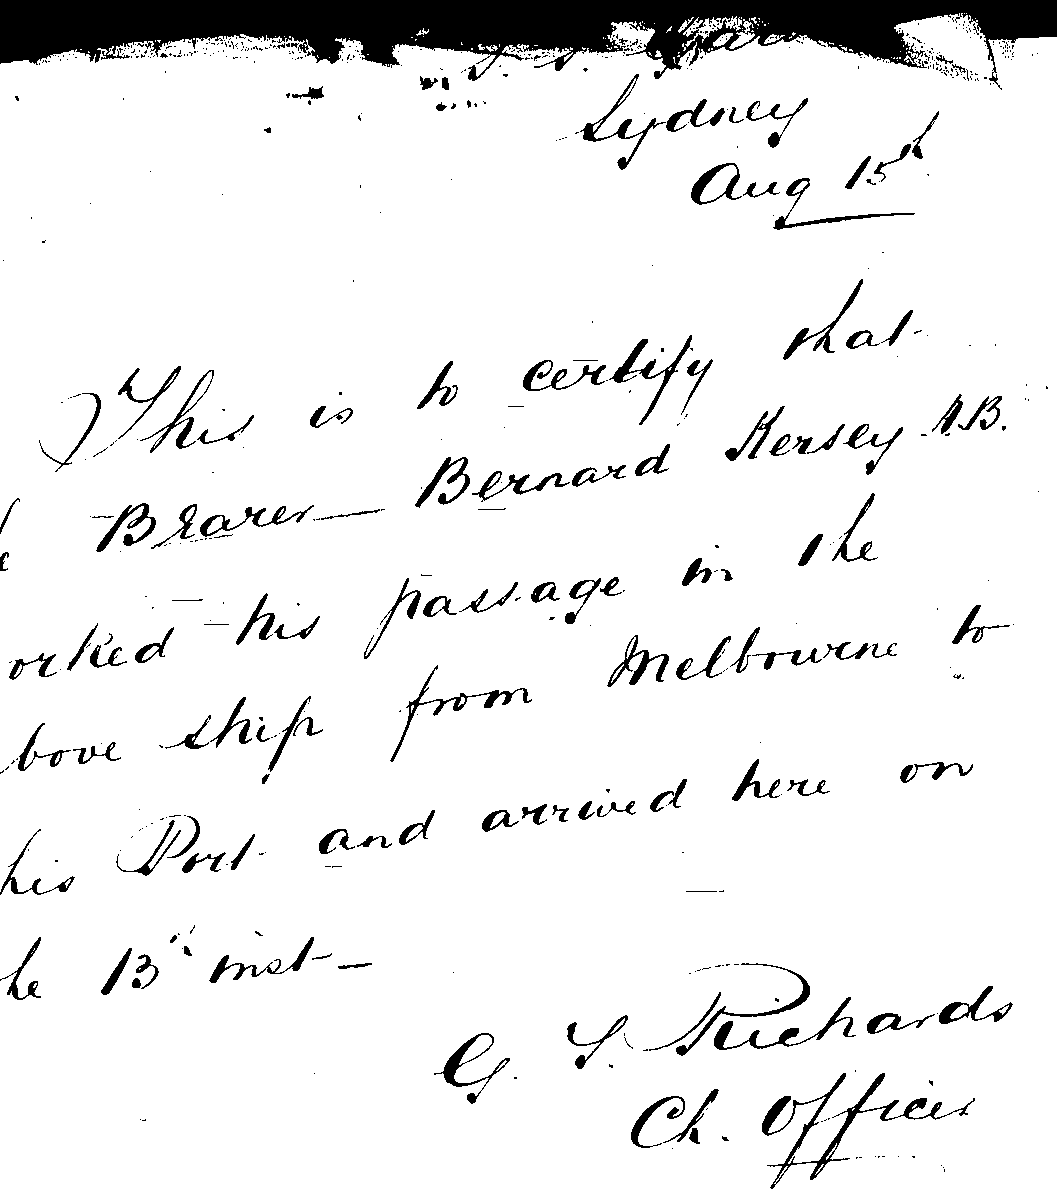 Sydney
Aug 15th
This is to certify that
Bearer — Bernard Kersey A.B.
orked his passage in the
bove ship from Melbourne to
his Port and arrived here on
he 13th inst —
G. S. Richards
Ch. Officer